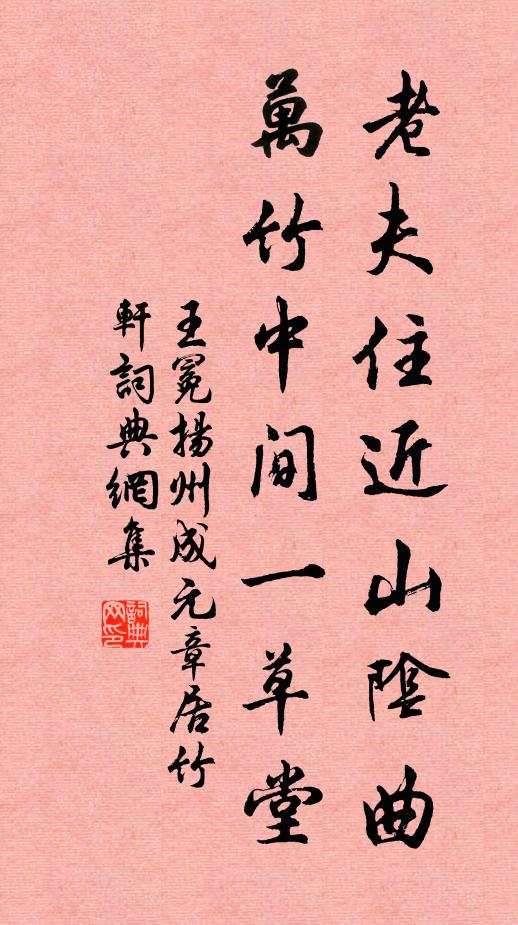 老夫住近山陰曲
萬竹中間一草堂
王冕揚州成元章居竹
軒詞典網集
詞典網印